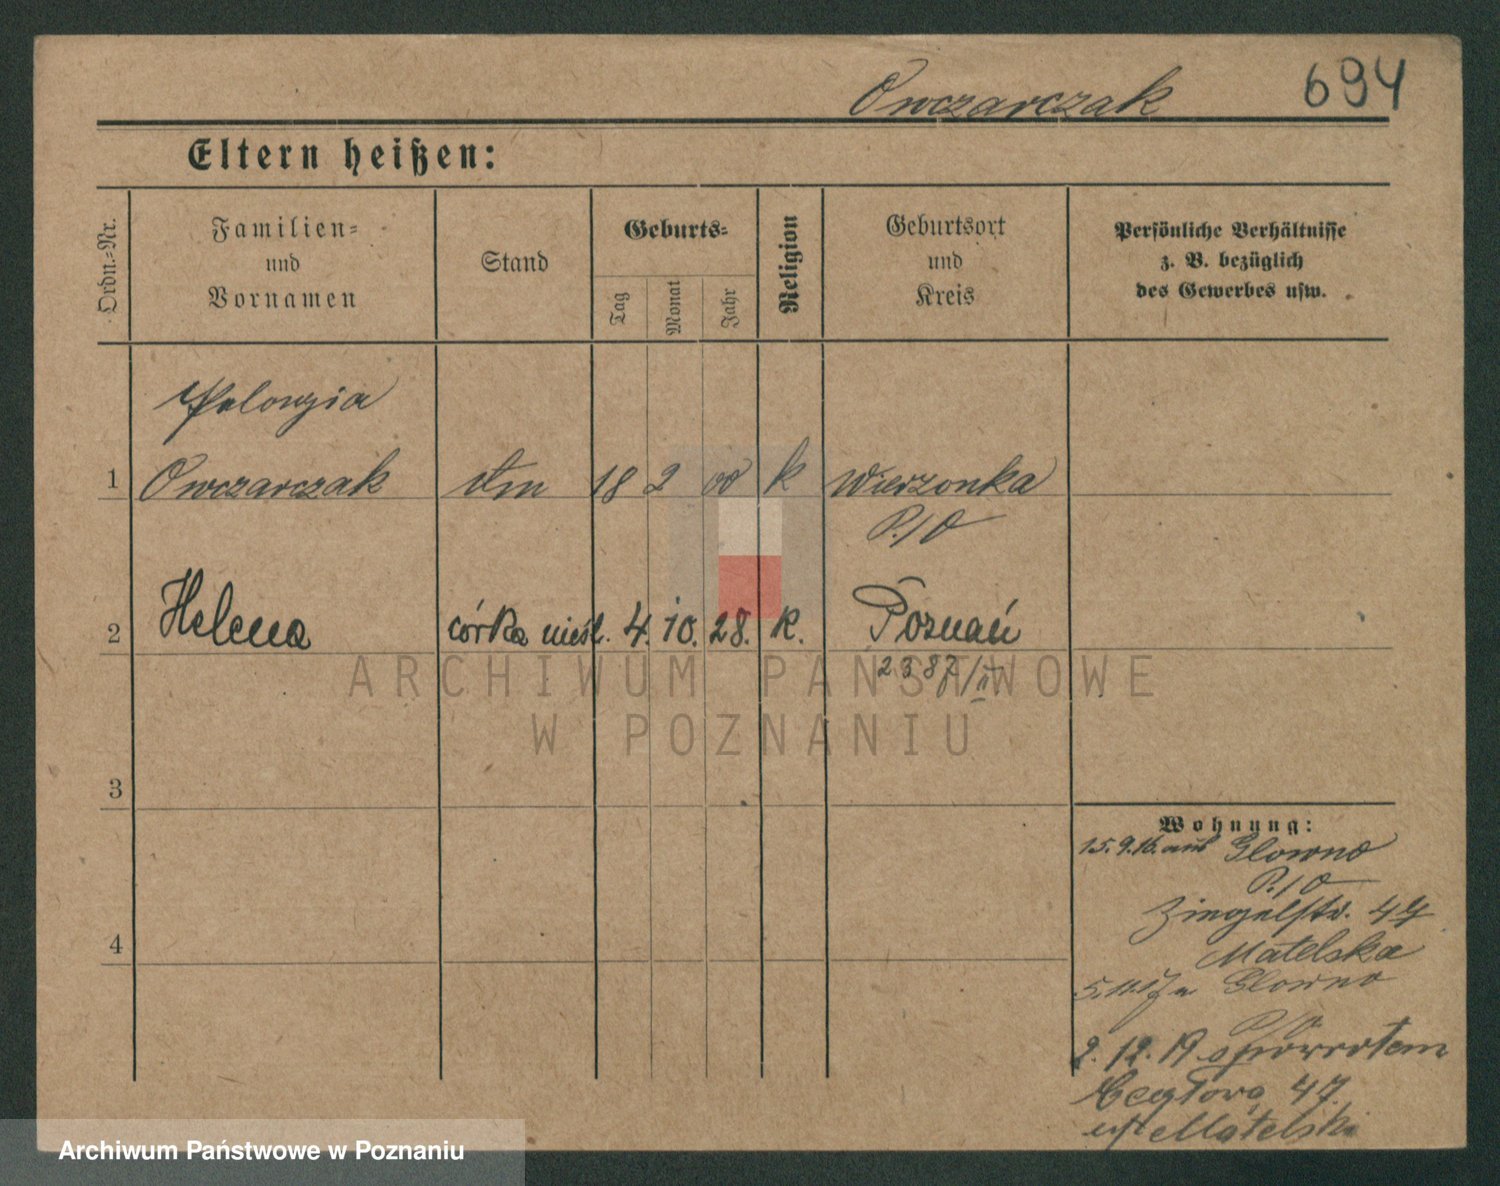 Owczarczak 694
Eltern heißen:
Ordn.-Nr.
Familien-
und
Vornamen
Stand
Geburts-
Tag
Monat
Jahr
Religion
Geburtsort
und
Kreis
Persönliche Verhältnisse
z. B. bezüglich
des Gewerbes usw.
Pelagia
1 Owczarczak dm 18 2 00 k Wierzonka
P./O
2 Helena córka nieśl. 4. 10. 28. k. Poznań
2387/II
ARCHIWUM PAŃSTWOWE
W POZNANIU
3
Wohnung:
15.9.16. aus Glowno
P./O
Ziegelstr. 47
4
Matelska
Glowno
P/O
2. 12. 19 spowrotem
Ceglova 47.
Matelski
Archiwum Państwowe w Poznaniu